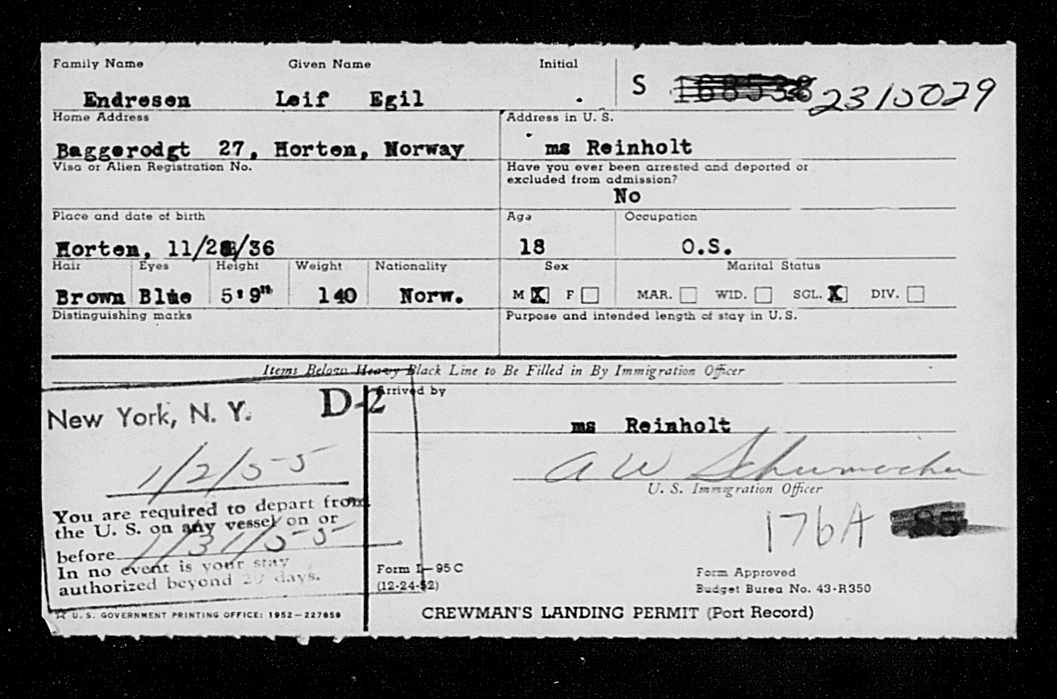 Family Name Given Name Initial
Endresen Leif Egil .
S 168538 2315029
Home Address Address in U. S.
Baggerodgt 27, Horten, Norway ms Reinholt
Visa or Alien Registration No. Have you ever been arrested and deported or
excluded from admission?
No
Place and date of birth Age Occupation
Horten, 11/2 /36 18 O.S.
Hair Eyes Height Weight Nationality Sex Marital Status
Brown Blue 5'9" 140 Norw. M X F MAR. WID. SGL. X DIV.
Distinguishing marks Purpose and intended length of stay in U. S.
Items Below Heavy Black Line to Be Filled in By Immigration Officer
Arrived by
New York, N. Y. D-2
ms Reinholt
1/2/55
A W Schumacher
U. S. Immigration Officer
You are required to depart from
the U. S. on any vessel on or
before 1/31/55
In no event is your stay
authorized beyond 29 days.
176A 85
Form I-95C
(12-24-52)
Form Approved
Budget Burea No. 43-R350
☆ U. S. GOVERNMENT PRINTING OFFICE: 1952—227858
CREWMAN'S LANDING PERMIT (Port Record)